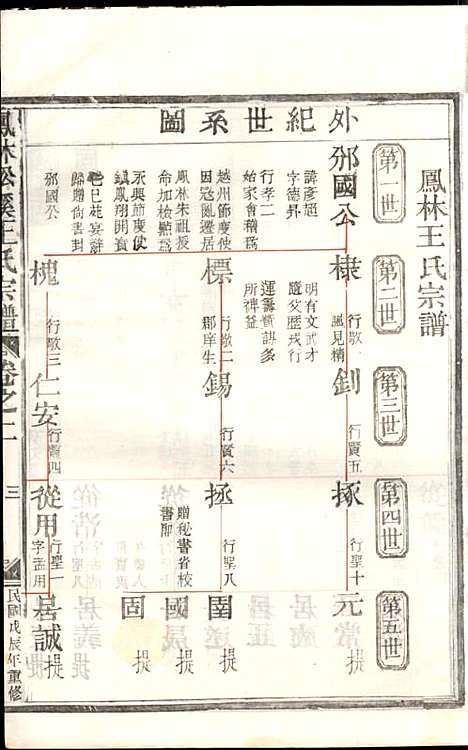 鳳林王氏宗譜
外紀世系圖
第一世
第二世
第三世
第四世
第五世
邠國公
諱彥超
字德昇
行孝二
始家會稽為
越州節度使
因寇亂遷居
鳳林朱祖授
命加檢點為
永興節度使
鎮鳳翔開寶
乞辭
歸贈尚書封
邠國公
棣
行敬一
風見精
明有文武才
隨父歷戎行
運籌
所裨益
標
行敬二
郡庠生
槐
行敬三
釗
行賢五
錫
行賢六
仁安
行賢四
琢
行聖十
拯
行聖八
贈秘書省校
書郎
從用
行聖一
字孟用
元
提
圉
提
國
提
固
提
居誠
提
鳳林松溪王氏宗譜
卷之二
三
民國戊辰年重修